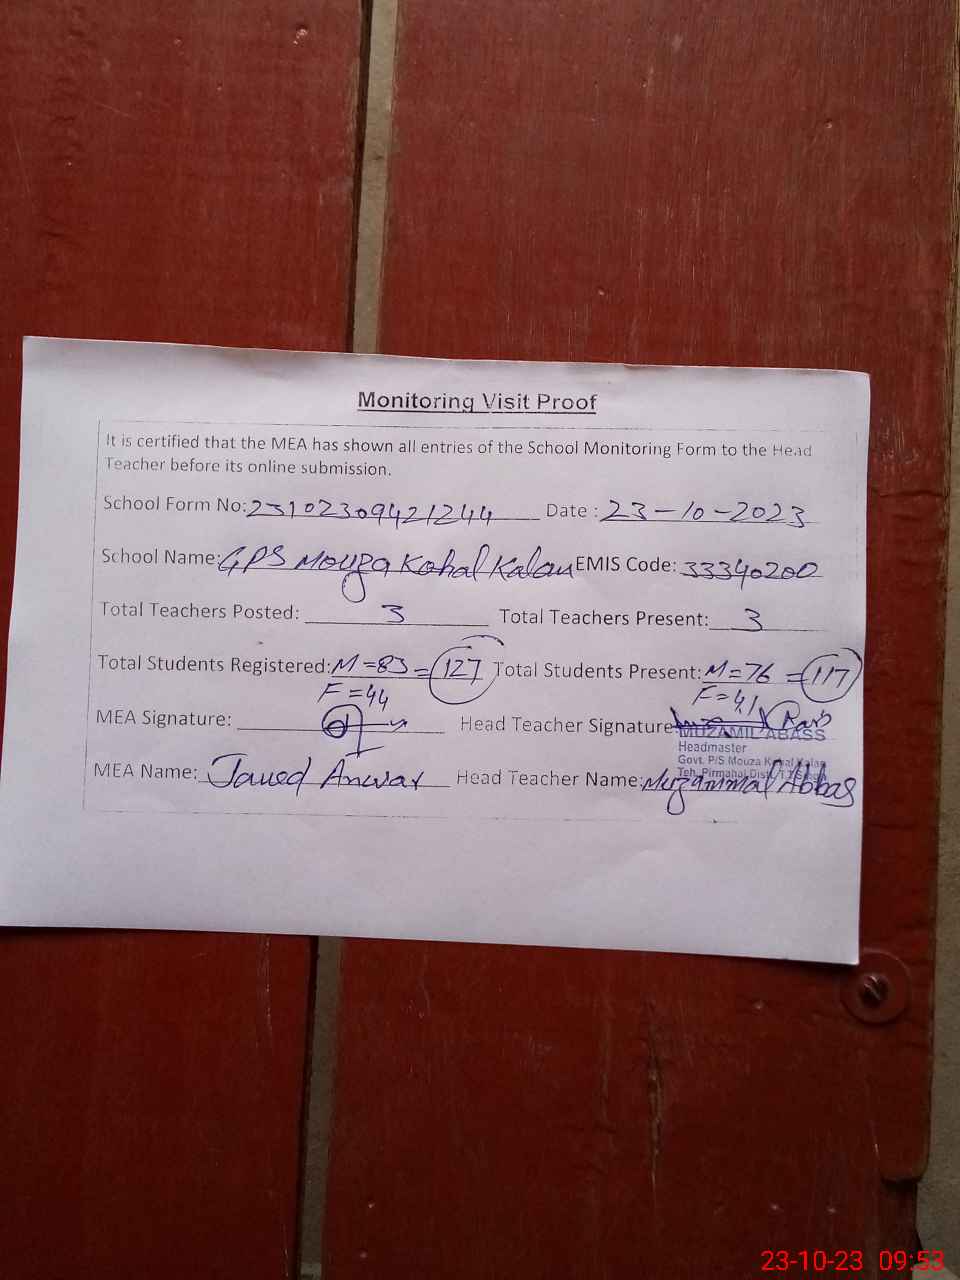 Monitoring Visit Proof
It is certified that the MEA has shown all entries of the School Monitoring Form to the Head
Teacher before its online submission.
School Form No: 23102309421244 Date : 23-10-2023
School Name: GPS Mouza Kohal Kalan EMIS Code: 33340200
Total Teachers Posted: 3 Total Teachers Present: 3
Total Students Registered: M=83 = 127 Total Students Present: M=76 = 117
F=44 F=41
MEA Signature: Head Teacher Signature
MUZAMIL ABASS
Headmaster
Govt. P/S Mouza Kohal Kalan
Teh. Pirmahal Distt. T.T.Singh
MEA Name: Javed Anwar Head Teacher Name: Muzammal Abbas
23-10-23 09:53